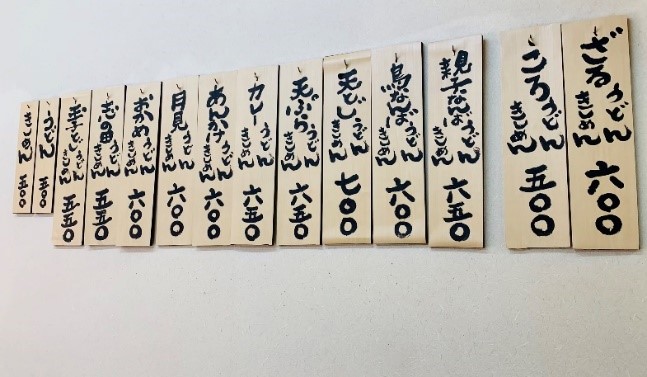 ざる うどん きしめん 六〇〇
ころ うどん きしめん 五〇〇
親子なんば うどん きしめん 六五〇
鳥なんば うどん きしめん 六〇〇
天とじ うどん きしめん 七〇〇
天ぷら うどん きしめん 六五〇
カレー うどん きしめん 六五〇
あんかけ うどん きしめん 六〇〇
月見 うどん きしめん 六〇〇
おかめ うどん きしめん 六〇〇
志の田 うどん きしめん 五五〇
玉子とじ うどん きしめん 五五〇
うどん 五〇〇
きしめん 五〇〇